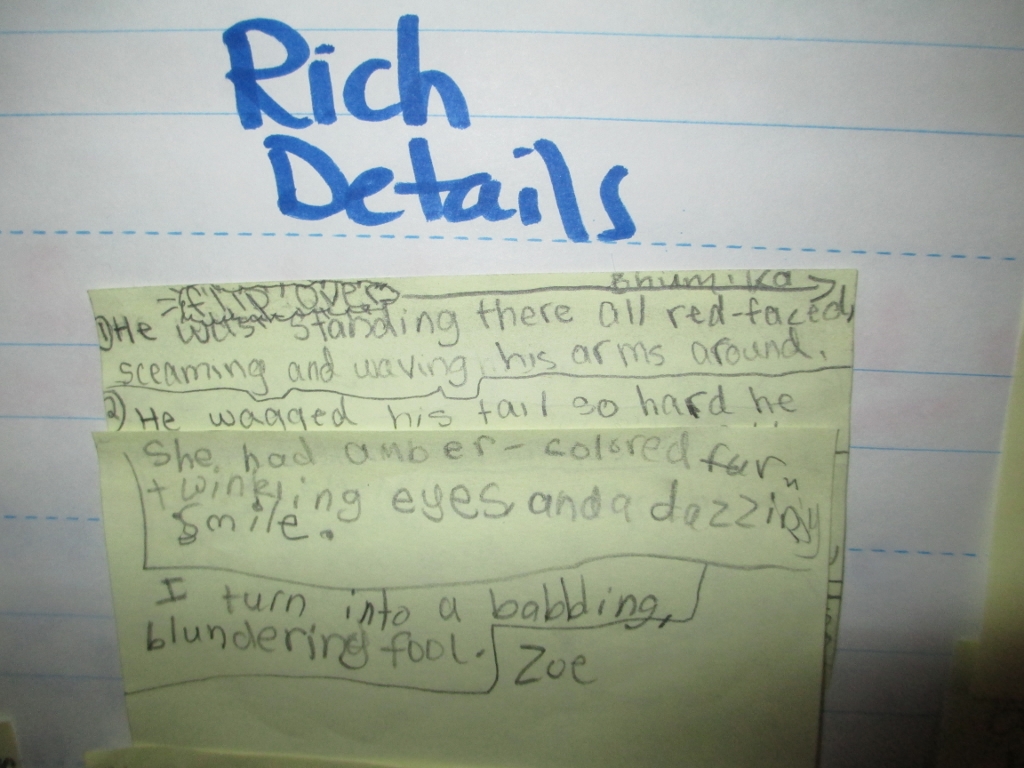 Rich
Details
Bhumika
flip over
1) He was standing there all red-faced,
sceaming and waving his arms around.
2) He wagged his tail so hard he
She had amber-colored fur,
twinkling eyes and a dazzing
smile.
I turn into a babbling,
blundering fool.
Zoe